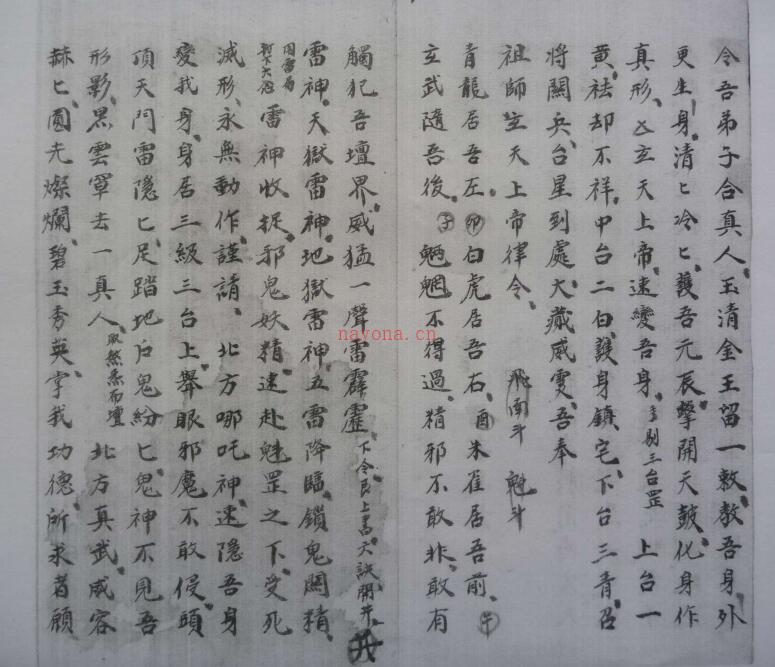 令吾弟子合真人玉清金王留一敕敕吾身外
更生身清匕冷匕護吾元辰擊開天鼓化身作
真形玄天上帝速變吾身步剔三台罡上台一
黄祛却不祥中台二白護身鎮宅下台三青召
將關兵台星到處大藏威灵吾奉
祖師玄天上帝律令飛南斗魁斗
青龍居吾左卯白虎居吾右酉朱雀居吾前午
玄武隨吾後子魍魎不得過精邪不敢非敢有
觸犯吾壇界威猛一聲雷霹靂下令艮上書天訣開井井
雷神天獄雷神地獄雷神五雷降臨鎖鬼関精
用雷局
打下大 雷神收捉邪鬼妖精速赴魁罡之下受死
滅形永無動作謹請北方哪吒神速隱吾身
變我身身居三級三台上舉眼邪魔不敢侵頭
頂天門雷隱匕足踏地户鬼紛匕鬼神不見吾
形影黑雲罩去一真人 而壇北方真武威容
赫匕圓光燦爛碧玉秀英掌我功德所求者願
nayona.cn